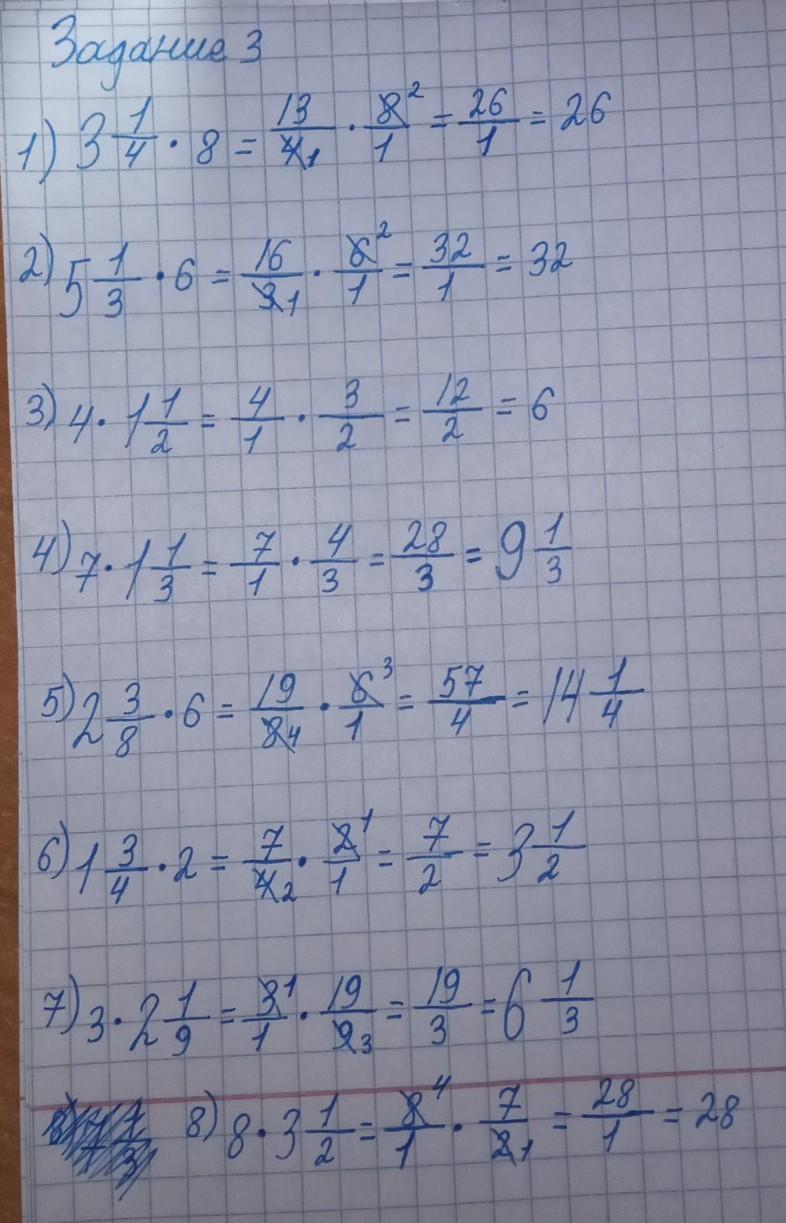 Задание 3
1) 3 1/4 · 8 = 13/4 1 · 8/1 2 = 26/1 = 26
2) 5 1/3 · 6 = 16/3 1 · 6/1 2 = 32/1 = 32
3) 4 · 1 1/2 = 4/1 · 3/2 = 12/2 = 6
4) 7 · 1 1/3 = 7/1 · 4/3 = 28/3 = 9 1/3
5) 2 3/8 · 6 = 19/8 4 · 6/1 3 = 57/4 = 14 1/4
6) 1 3/4 · 2 = 7/4 2 · 2/1 1 = 7/2 = 3 1/2
7) 3 · 2 1/9 = 3/1 1 · 19/9 3 = 19/3 = 6 1/3
8) 8 · 3 1/2 = 8/1 4 · 7/2 1 = 28/1 = 28